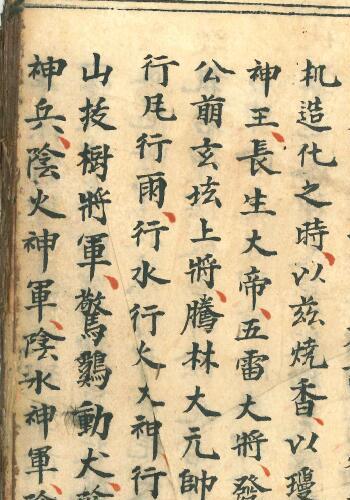 机造化之時、以茲燒香、以瓊
神王、長生大帝、五雷大將、發
公萠玄坛上將、騰林大元帥
行𠘨行雨、行水行火火神行
山技樹將軍、驚鵝動犬
神兵、陰火神軍、陰水神軍、陰